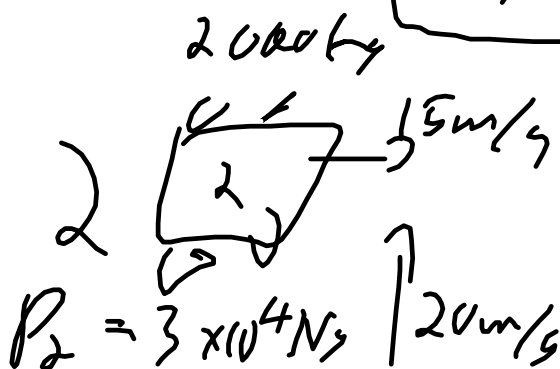 2000kg
15m/s
2
2
P₂ = 3 x10⁴ Ns
20m/s